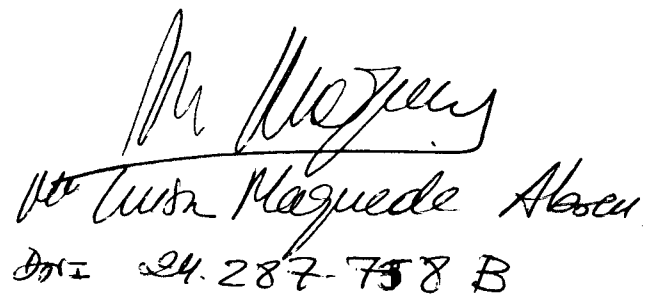 Mª Luisa Maquede Abreu
DNI 24.287.758 B